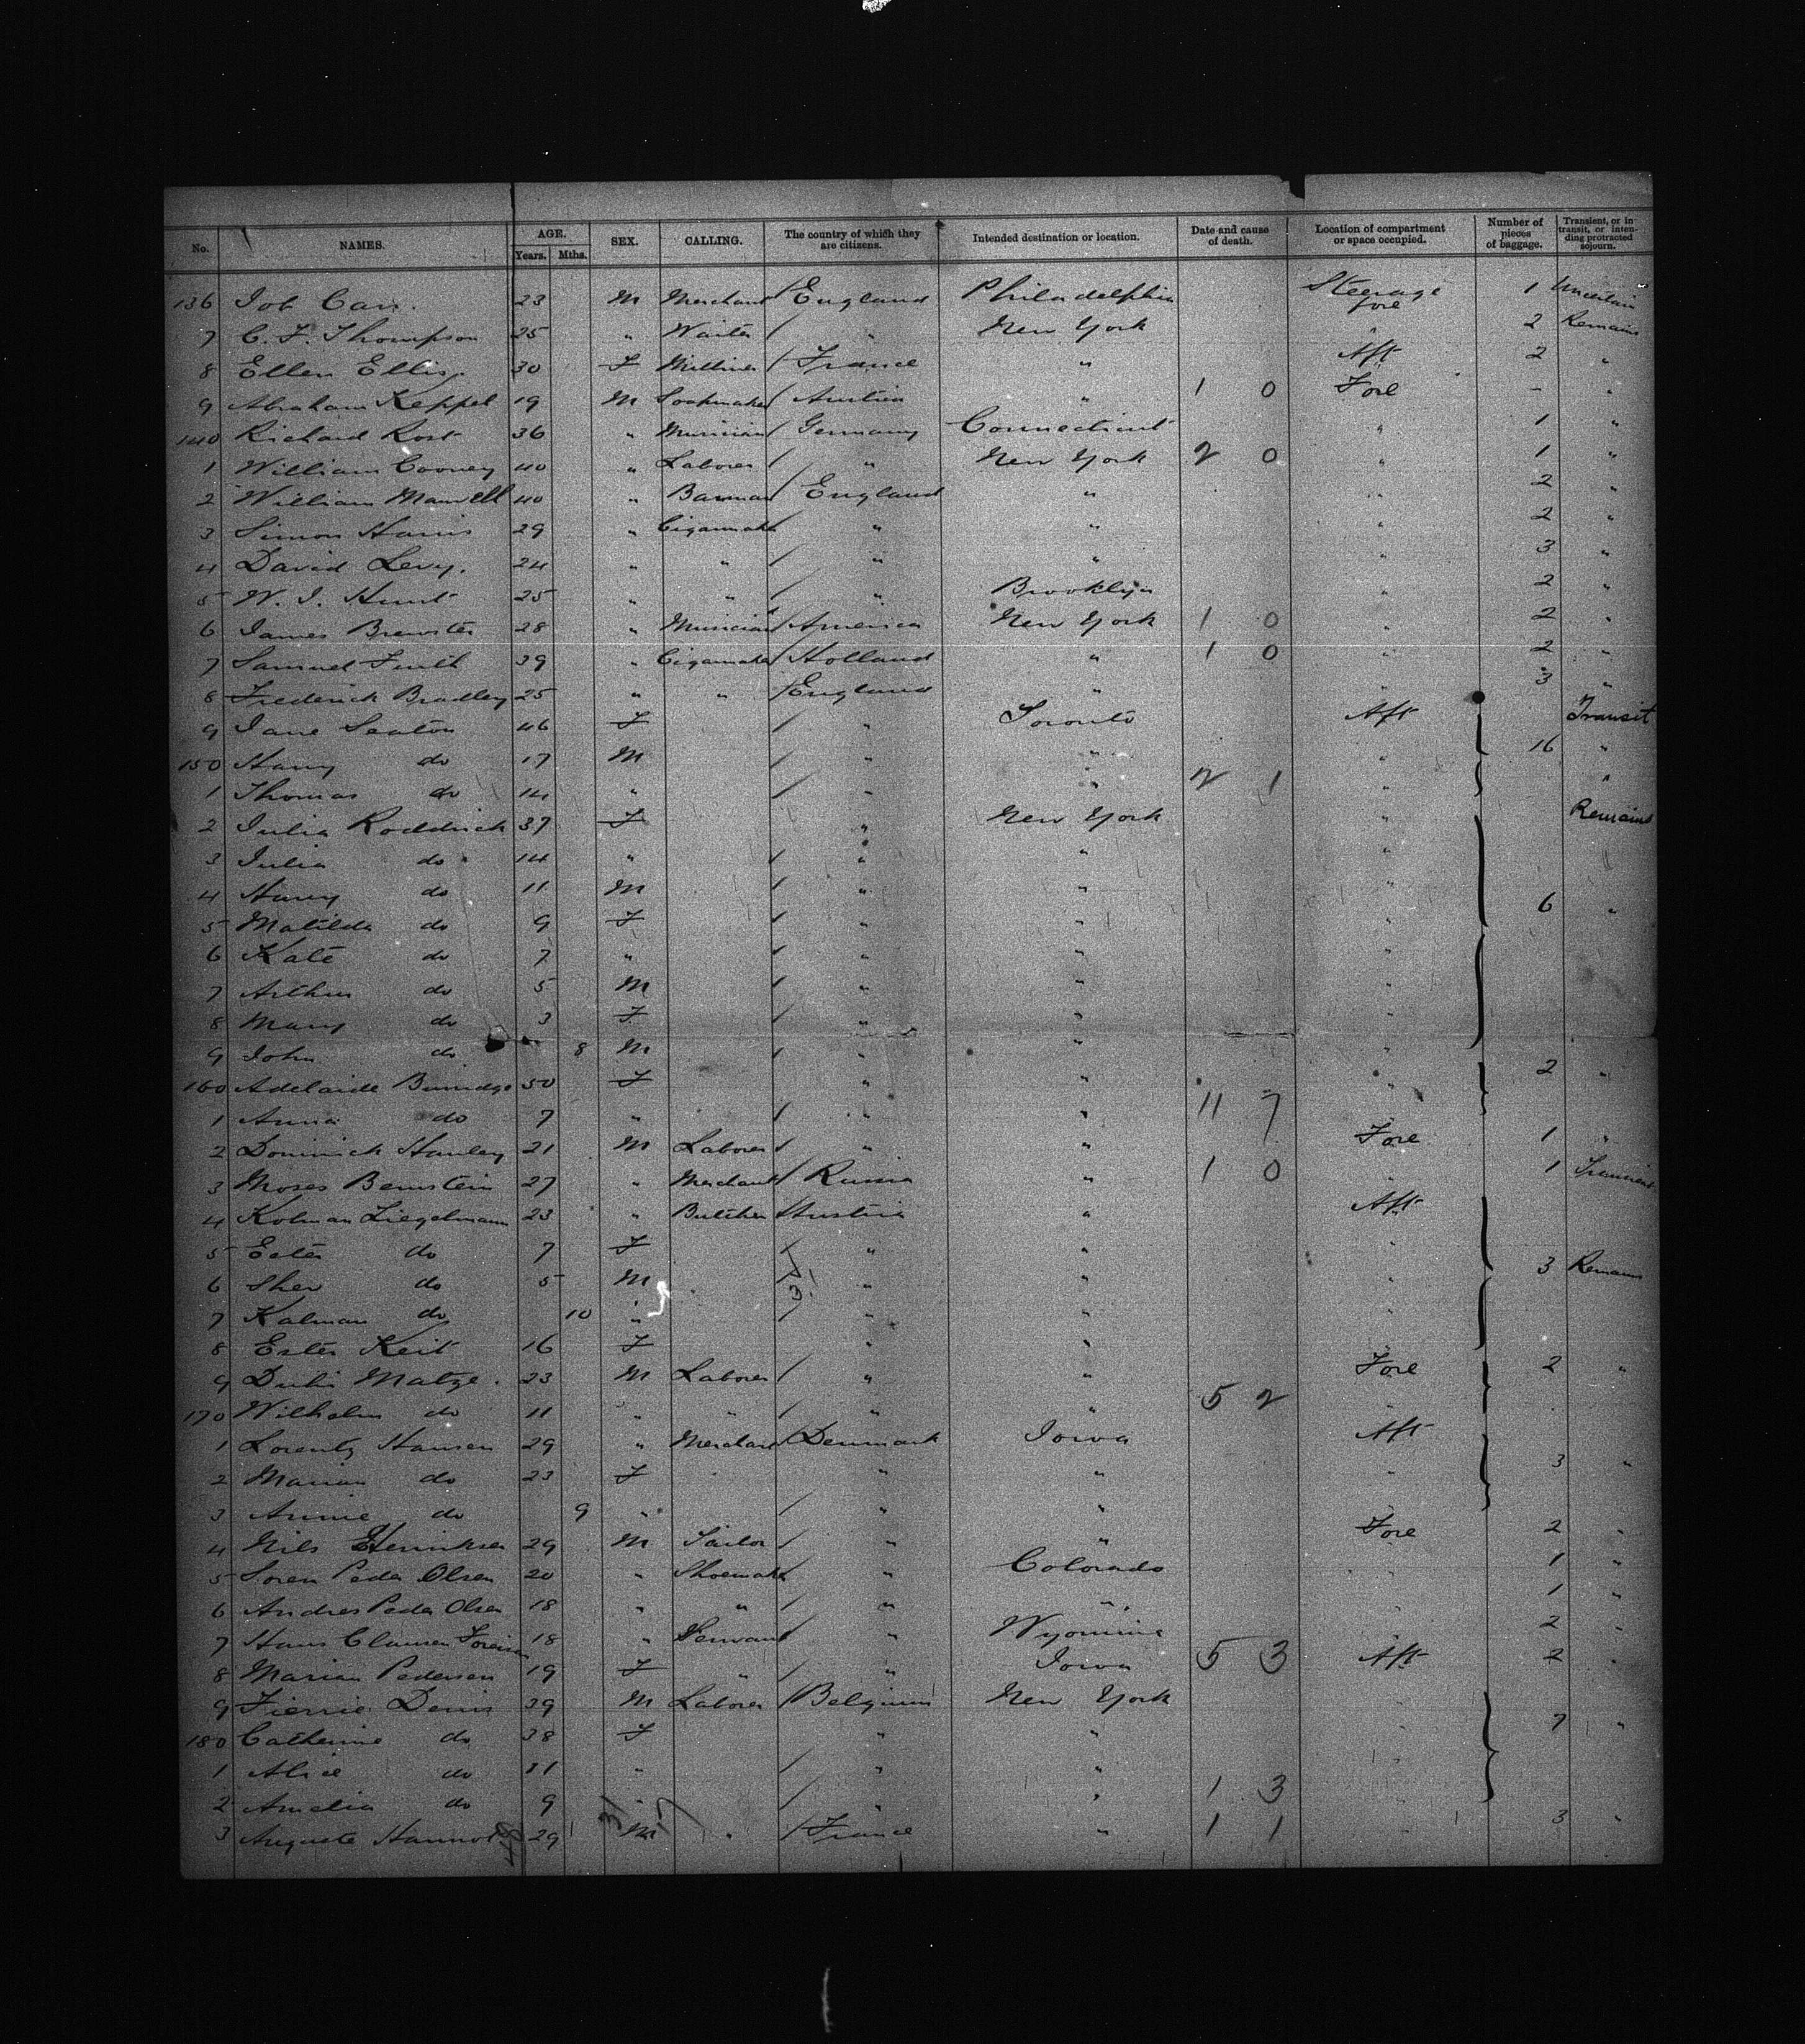 No. NAMES. AGE. Years. Mths. SEX. CALLING. The country of which they are citizens. Intended destination or location. Date and cause of death. Location of compartment or space occupied. Number of pieces of baggage. Transient, or in transit, or intending protracted sojourn.
136 Job Carr. 23 M Merchant England Philadelphia Steerage fore 1 Uncertain
7 C. F. Thompson 25 " Waiter " New York " 2 Remains
8 Ellen Ellis 30 F Milliner France " Aft 2 "
9 Abraham Keppel 19 M Austria " 1 0 Fore - "
140 Richard Rost 36 " Musician Germany Connecticut " 1 "
1 William Cooney 40 " Laborer " New York 2 0 " 1 "
2 William Manvell 40 " Barman England " " 2 "
3 Simon Harris 29 " Cigarmaker " " " 2 "
4 David Levy. 24 " " " " " 3 "
5 W. J. Hunt 25 " " " Brooklyn " 2 "
6 James Brewster 28 " Musician America New York 1 0 " 2 "
7 Samuel 39 " Cigarmaker Holland " 1 0 " 2 "
8 Frederick Bradley 25 " " England " " 3 "
9 Jane Seaton 46 F " Toronto Aft Transit
150 Harry do 17 M " " " 16 "
1 Thomas do 14 " " " 2 1 " "
2 Julia Roddrick 37 F " New York " Remains
3 Julia do 14 " " " "
4 Harry do 11 M " " "
5 Matilda do 9 F " " " 6 "
6 Kate do 7 " " " "
7 Arthur do 5 M " " "
8 Mary do 3 F " " "
9 John do 8 M " " "
160 Adelaide Burridge 50 F " " " 2 "
1 Anna do 7 " " " 11 7
2 Dominick Hanley 21 M Laborer " " Fore 1 "
3 Moses Bernstein 27 " Merchant Russia " 1 0 " 1 Transient
4 Kolman Ziegelmann 23 " Butcher Austria " Aft
5 Ester do 7 F " " "
6 Sher do 5 M " " " 3 Remains
7 Kalman do 10 " " " "
8 Ester Keit 16 F " " "
9 Matze. 23 M Laborer " " Fore 2 "
170 Wilhelm do 11 " " " " 5 2 "
1 Lorentz Hansen 29 " Merchant Denmark Iowa Aft
2 Marian do 23 F " " " 3 "
3 Annie do 9 " " " "
4 Nils Henriksen 29 M Tailor " " Fore 2 "
5 Soren Peder Olsen 20 " Shoemaker " Colorado " 1 "
6 Andres Peder Olsen 18 " " " " " 1 "
7 Hans Clausen 18 " Servant " Wyoming " 2 "
8 Marian Pedersen 19 F " " Iowa 5 3 Aft 2 "
9 Denis 39 M Laborer Belgium New York
180 Catherine do 38 F " " " 7 "
1 Alice do 31 " " " "
2 Amelia do 9 " " " 1 3
3 Auguste 29 M " France " 1 1 " 3 "